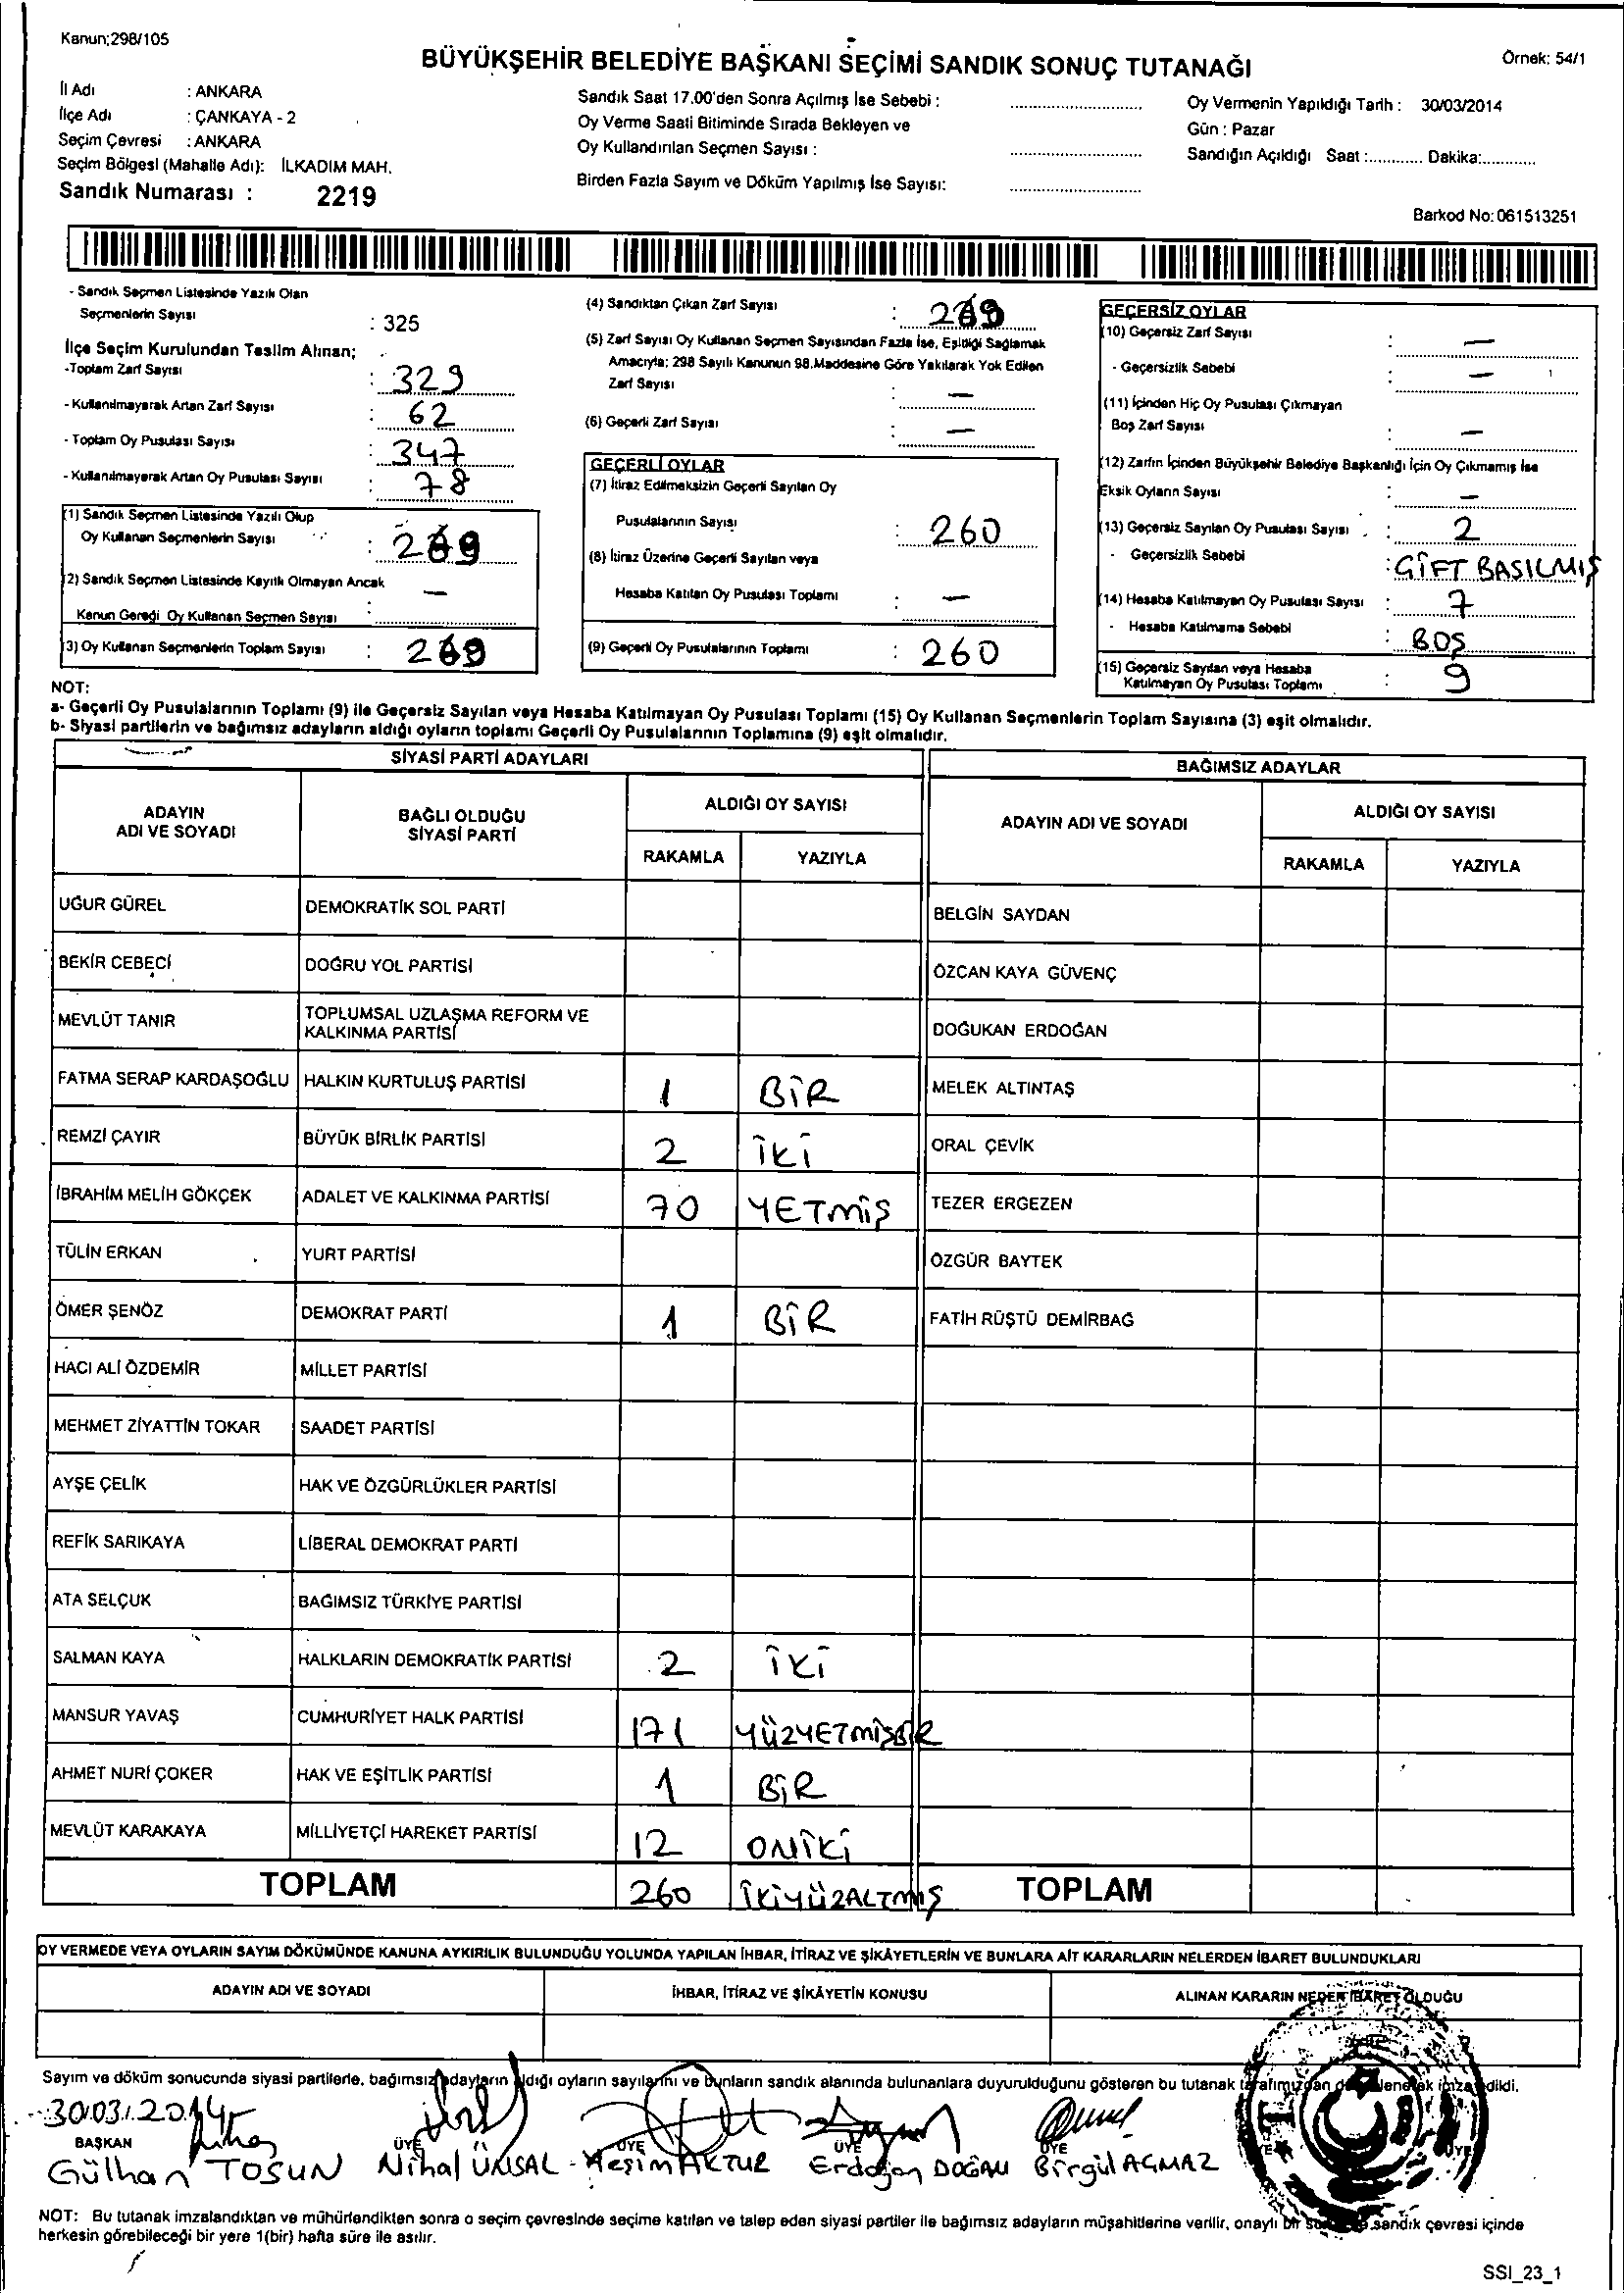 Kanun;298/105
BÜYÜKŞEHİR BELEDİYE BAŞKANI SEÇİMİ SANDIK SONUÇ TUTANAĞI
Örnek: 54/1
İl Adı : ANKARA
İlçe Adı : ÇANKAYA - 2
Seçim Çevresi : ANKARA
Seçim Bölgesi (Mahalle Adı): İLKADIM MAH.
Sandık Numarası : 2219
Sandık Saat 17.00'den Sonra Açılmış İse Sebebi :
Oy Verme Saati Bitiminde Sırada Bekleyen ve
Oy Kullandırılan Seçmen Sayısı :
Birden Fazla Sayım ve Döküm Yapılmış İse Sayısı:
Oy Vermenin Yapıldığı Tarih : 30/03/2014
Gün : Pazar
Sandığın Açıldığı Saat :............ Dakika:...........
Barkod No: 061513251
- Sandık Seçmen Listesinde Yazılı Olan
Seçmenlerin Sayısı : 325
İlçe Seçim Kurulundan Teslim Alınan;
-Toplam Zarf Sayısı : 329
- Kullanılmayarak Artan Zarf Sayısı : 62
- Toplam Oy Pusulası Sayısı : 347
- Kullanılmayarak Artan Oy Pusulası Sayısı : 78
(1) Sandık Seçmen Listesinde Yazılı Olup
Oy Kullanan Seçmenlerin Sayısı : 269
(2) Sandık Seçmen Listesinde Kayıtlı Olmayan Ancak
Kanun Gereği Oy Kullanan Seçmen Sayısı : —
(3) Oy Kullanan Seçmenlerin Toplam Sayısı : 269
(4) Sandıktan Çıkan Zarf Sayısı : 269
(5) Zarf Sayısı Oy Kullanan Seçmen Sayısından Fazla İse, Eşitliği Sağlamak
Amacıyla; 298 Sayılı Kanunun 98.Maddesine Göre Yakılarak Yok Edilen
Zarf Sayısı : —
(6) Geçerli Zarf Sayısı : —
GEÇERLİ OYLAR
(7) İtiraz Edilmeksizin Geçerli Sayılan Oy
Pusulalarının Sayısı : 260
(8) İtiraz Üzerine Geçerli Sayılan veya
Hesaba Katılan Oy Pusulası Toplamı : —
(9) Geçerli Oy Pusulalarının Toplamı : 260
GEÇERSİZ OYLAR
(10) Geçersiz Zarf Sayısı : —
- Geçersizlik Sebebi : —
(11) İçinden Hiç Oy Pusulası Çıkmayan
Boş Zarf Sayısı : —
(12) Zarfın İçinden Büyükşehir Belediye Başkanlığı İçin Oy Çıkmamış İse
Eksik Oyların Sayısı : —
(13) Geçersiz Sayılan Oy Pusulası Sayısı : 2
- Geçersizlik Sebebi : ÇİFT BASILMIŞ
(14) Hesaba Katılmayan Oy Pusulası Sayısı : 7
- Hesaba Katılmama Sebebi : BOŞ
(15) Geçersiz Sayılan veya Hesaba
Katılmayan Oy Pusulası Toplamı : 9
NOT:
a- Geçerli Oy Pusulalarının Toplamı (9) ile Geçersiz Sayılan veya Hesaba Katılmayan Oy Pusulası Toplamı (15) Oy Kullanan Seçmenlerin Toplam Sayısına (3) eşit olmalıdır.
b- Siyasi partilerin ve bağımsız adayların aldığı oyların toplamı Geçerli Oy Pusulalarının Toplamına (9) eşit olmalıdır.
SİYASİ PARTİ ADAYLARI
BAĞIMSIZ ADAYLAR
ADAYIN ADI VE SOYADI
BAĞLI OLDUĞU SİYASİ PARTİ
ALDIĞI OY SAYISI
RAKAMLA YAZIYLA
ADAYIN ADI VE SOYADI
ALDIĞI OY SAYISI
RAKAMLA YAZIYLA
UĞUR GÜREL DEMOKRATİK SOL PARTİ BELGİN SAYDAN
BEKİR CEBECİ DOĞRU YOL PARTİSİ ÖZCAN KAYA GÜVENÇ
MEVLÜT TANIR TOPLUMSAL UZLAŞMA REFORM VE KALKINMA PARTİSİ DOĞUKAN ERDOĞAN
FATMA SERAP KARDAŞOĞLU HALKIN KURTULUŞ PARTİSİ 1 BİR MELEK ALTINTAŞ
REMZİ ÇAYIR BÜYÜK BİRLİK PARTİSİ 2 İKİ ORAL ÇEVİK
İBRAHİM MELİH GÖKÇEK ADALET VE KALKINMA PARTİSİ 70 YETMİŞ TEZER ERGEZEN
TÜLİN ERKAN YURT PARTİSİ ÖZGÜR BAYTEK
ÖMER ŞENÖZ DEMOKRAT PARTİ 1 BİR FATİH RÜŞTÜ DEMİRBAĞ
HACI ALİ ÖZDEMİR MİLLET PARTİSİ
MEHMET ZİYATTİN TOKAR SAADET PARTİSİ
AYŞE ÇELİK HAK VE ÖZGÜRLÜKLER PARTİSİ
REFİK SARIKAYA LİBERAL DEMOKRAT PARTİ
ATA SELÇUK BAĞIMSIZ TÜRKİYE PARTİSİ
SALMAN KAYA HALKLARIN DEMOKRATİK PARTİSİ 2 İKİ
MANSUR YAVAŞ CUMHURİYET HALK PARTİSİ 171 YÜZYETMİŞBİR
AHMET NURİ ÇOKER HAK VE EŞİTLİK PARTİSİ 1 BİR
MEVLÜT KARAKAYA MİLLİYETÇİ HAREKET PARTİSİ 12 ONİKİ
TOPLAM 260 İKİYÜZALTMIŞ TOPLAM
OY VERMEDE VEYA OYLARIN SAYIM DÖKÜMÜNDE KANUNA AYKIRILIK BULUNDUĞU YOLUNDA YAPILAN İHBAR, İTİRAZ VE ŞİKÂYETLERİN VE BUNLARA AİT KARARLARIN NELERDEN İBARET BULUNDUKLARI
ADAYIN ADI VE SOYADI İHBAR, İTİRAZ VE ŞİKÂYETİN KONUSU ALINAN KARARIN NEDEN İBARET OLDUĞU
Sayım ve döküm sonucunda siyasi partilerle, bağımsız adayların aldığı oyların sayılarını ve bunların sandık alanında bulunanlara duyurulduğunu gösteren bu tutanak tarafımızdan düzenlenerek imza edildi.
30.03.2014
BAŞKAN ÜYE ÜYE ÜYE ÜYE ÜYE ÜYE
Gülhan TOSUN Nihal ÜNSAL Nesim AKTUR Erdoğan DOĞAN Birgül AÇMAZ
NOT: Bu tutanak imzalandıktan ve mühürlendikten sonra o seçim çevresinde seçime katılan ve talep eden siyasi partiler ile bağımsız adayların müşahitlerine verilir, onaylı bir sandık çevresi içinde
herkesin görebileceği bir yere 1(bir) hafta süre ile asılır.
SSI_23_1